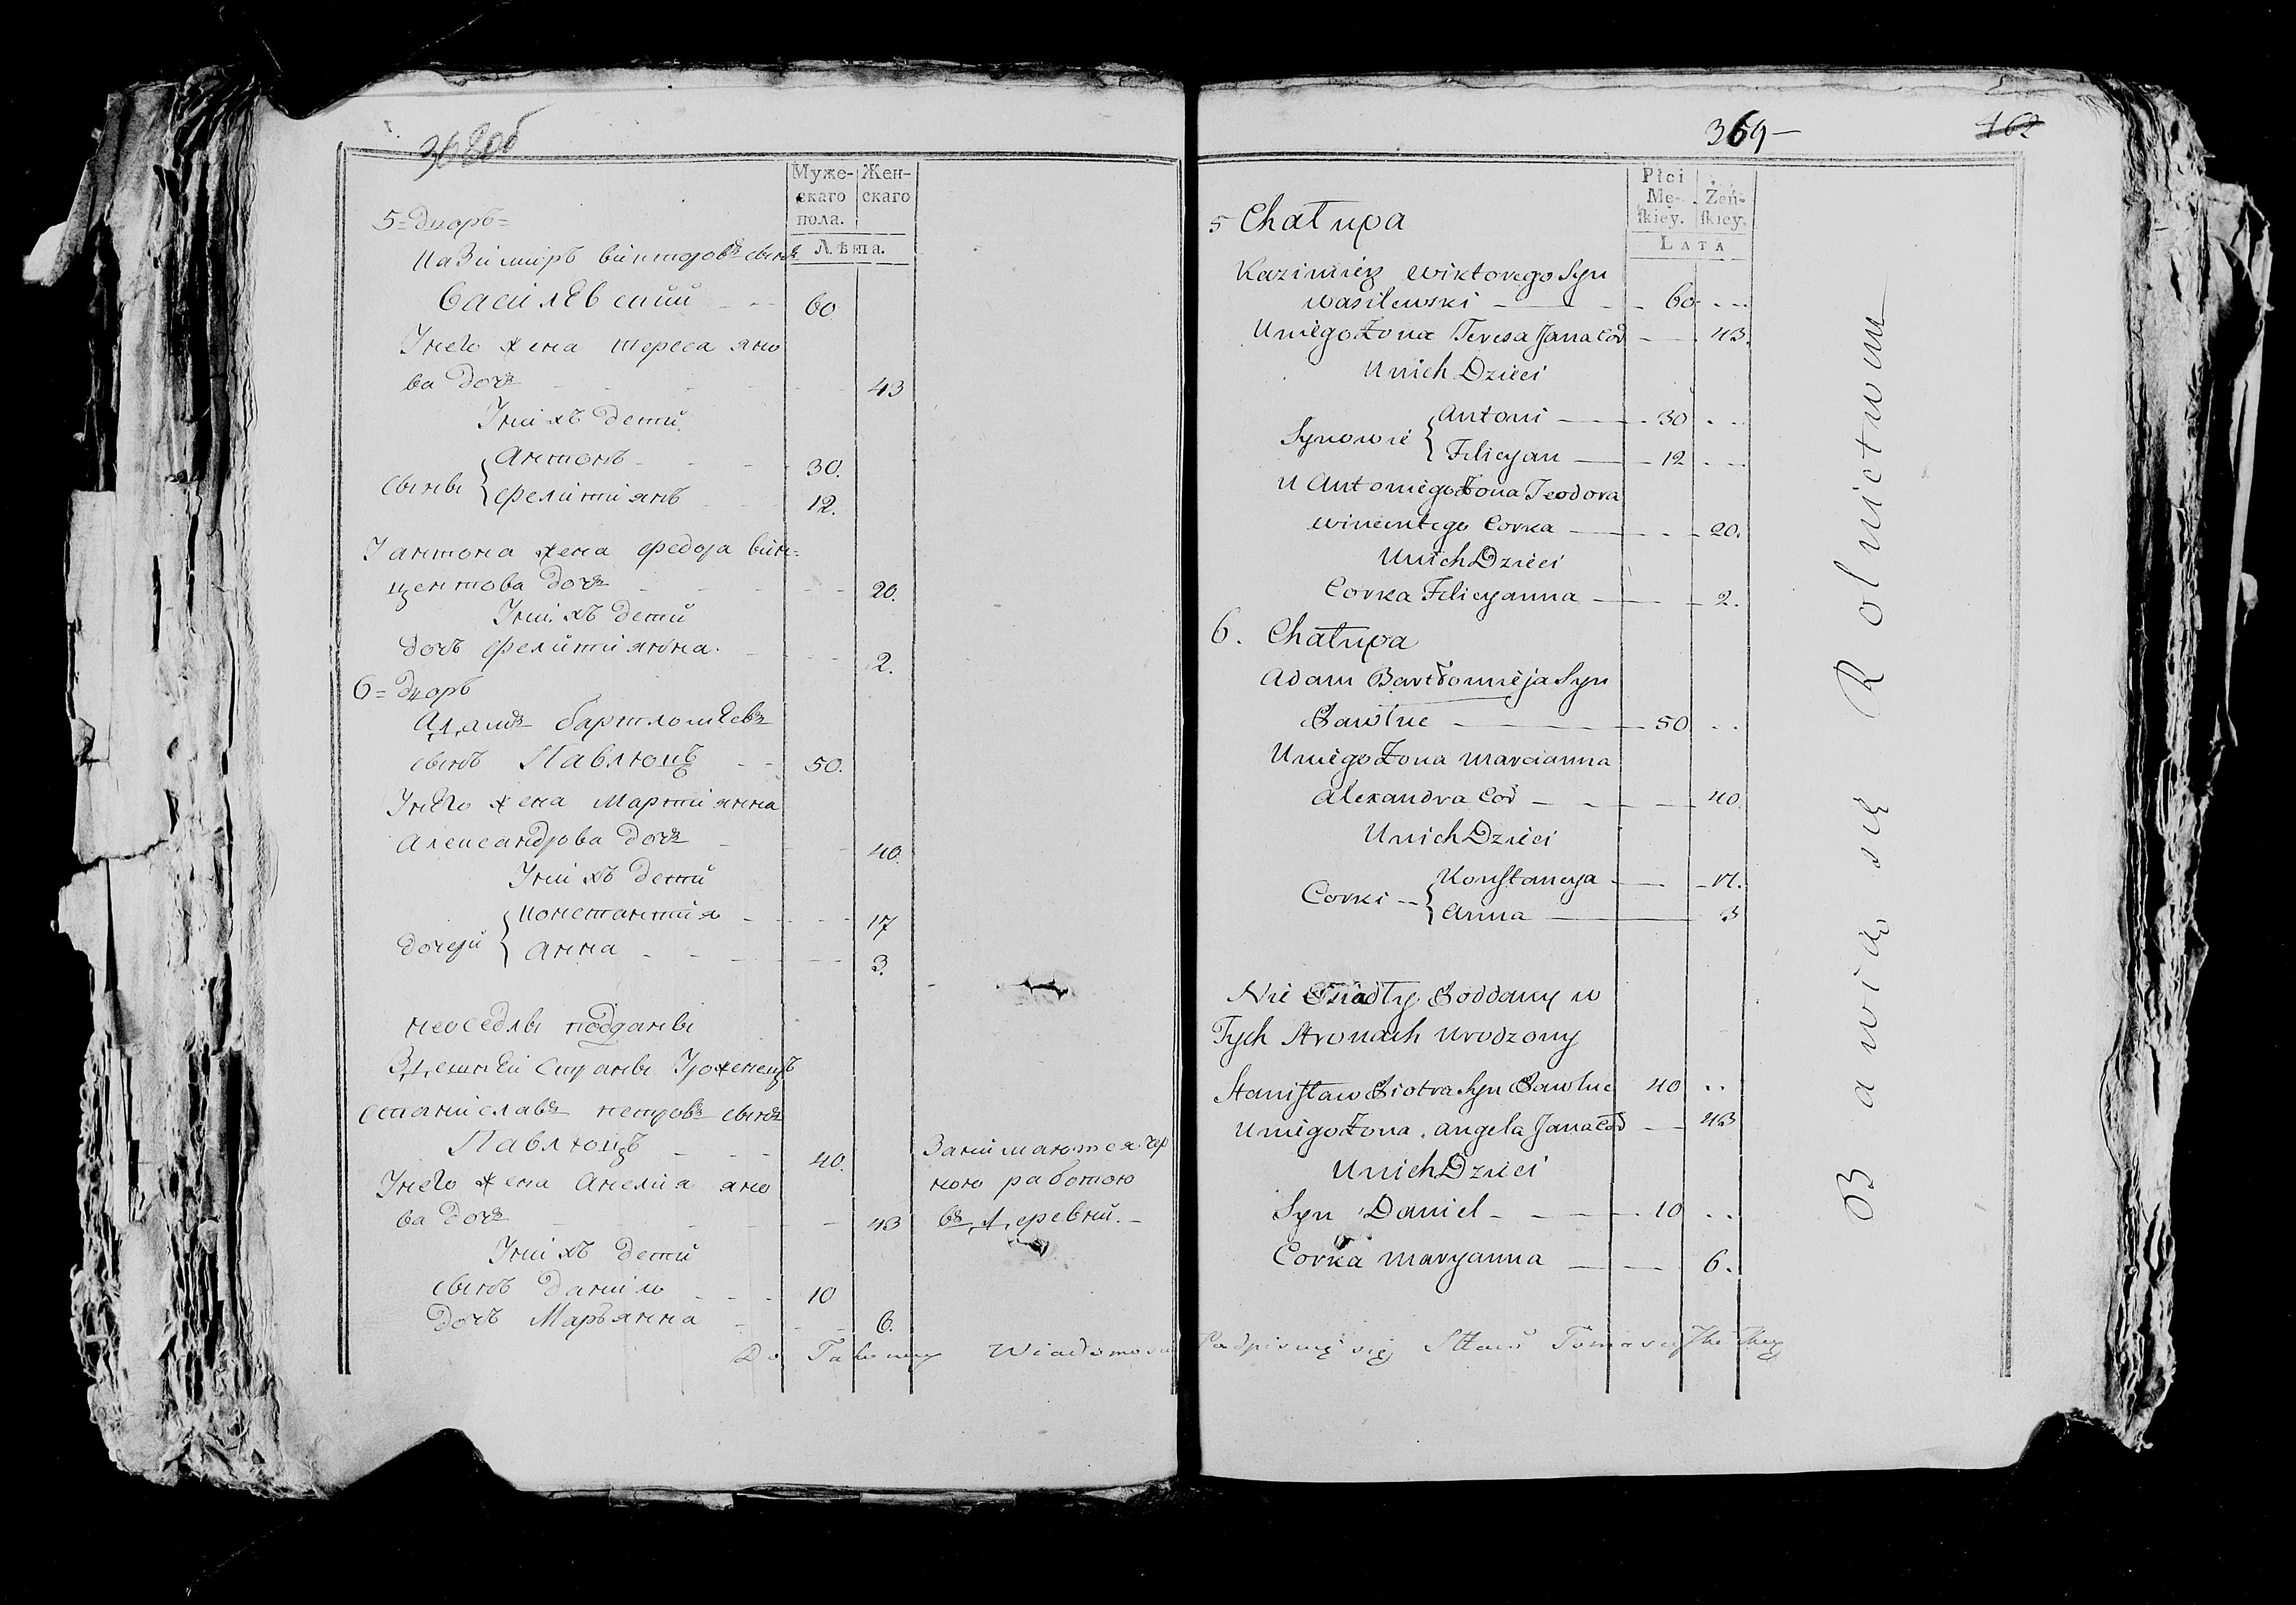 368об
Муже-
скаго
пола.
Жен-
скаго
Лѣта.
5= Дворъ=
Казимиръ викторовъ сынъ
Василевский 60
У него жена тереса яно
ва дочь 43
У нихъ дети
сыны { Антонъ 30.
фелитиянъ 12.
У антона жена федора вин-
центова дочь 20.
У нихъ дети
дочъ фелитиянна. 2.
6= Дворъ
Адамъ бартломѣевъ
сынъ Павлюцъ 50.
У него жена Мартиянна
Александрова дочь 40.
У нихъ дети
дочери { константия 17
анна 3.
неоседлы подданы
Здешнѣй страны Уроженецъ
станиславъ петровъ сынъ
Павлюцъ 40.
У него жена Анелия яно
ва дочь 43
Занимаются чор
ною работою
въ деревни.-
У нихъ дети
сынъ данило 10
дочъ Марьянна 6.
369- 162
Płci
Mę-
skiey.
Żeń-
skiey.
LATA
5 Chałupa
Kazimierz wiktorego Syn
wasilewski 60
U niego Żona Teresa Jana Cor 43.
U nich Dzieci
Synowie { Antoni 30
Felicyan 12
U Antoniego Żona Teodora
wincentego Corka 20.
U nich Dzieci
Corka Felicyanna 2.
6. Chałupa
Adam Bartłomieja Syn
Pawluc 50
U niego Żona Marcianna
Alexandra Cor 40
U nich Dzieci
Corki { Konstancya 17.
Anna 3
Nie Osiadły Poddany w
Tych Stronach Urodzony
Stanisław Piotra Syn Pawluc 40
U niego Żona Angela Jana Cor 43
U nich Dzieci
Syn Daniel 10
Corka Maryanna 6.
Bawią się Rolnictwem
Do Takowey Wiadomosci Podpisuię się